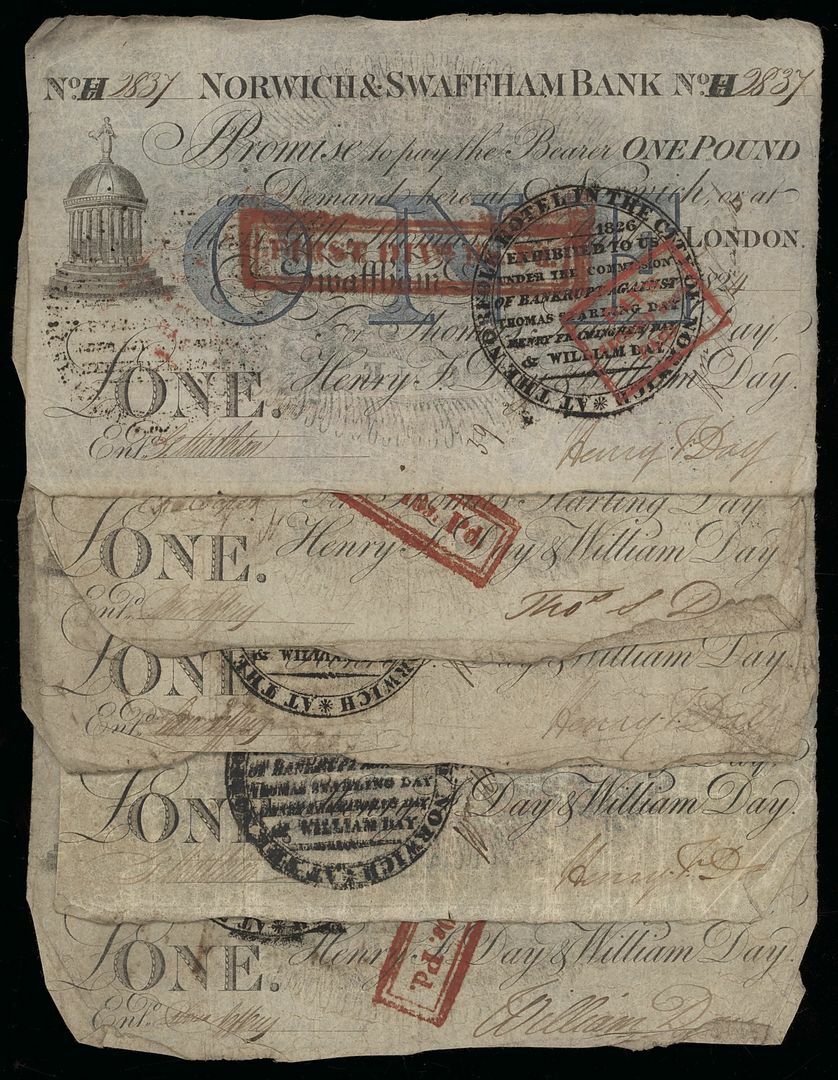 No. H 2837 NORWICH & SWAFFHAM BANK No. H 2837
I Promise to pay the Bearer ONE POUND
on Demand here at Norwich, or at
LONDON.
ONE
FIRST DIV
Swaffham 1824
For Thomas Day,
Henry F. Day & William Day.
£ONE.
Ent.d
39
Henry F. Day
AT THE NORFOLK HOTEL IN THE CITY OF NORWICH
1826
EXHIBITED TO US
UNDER THE COMMISSION
OF BANKRUPT AGAINST
THOMAS STARLING DAY
HENRY FRAMINGHAM DAY
& WILLIAM DAY
For Thomas Starling Day
£ONE. Henry F. Day & William Day.
Pd.
Ent.d Thos S Day
& WILLIAM
NORWICH * AT THE
£ONE Day & William Day.
Ent.d Henry F. Day
OF BANKRUPT AGAINST
THOMAS STARLING DAY
HENRY FRAMINGHAM DAY
& WILLIAM DAY
NORWICH * AT THE
£ONE Day & William Day.
Henry F. D
£ONE. Henry F. Day & William Day.
Pd.
Ent.d William Day